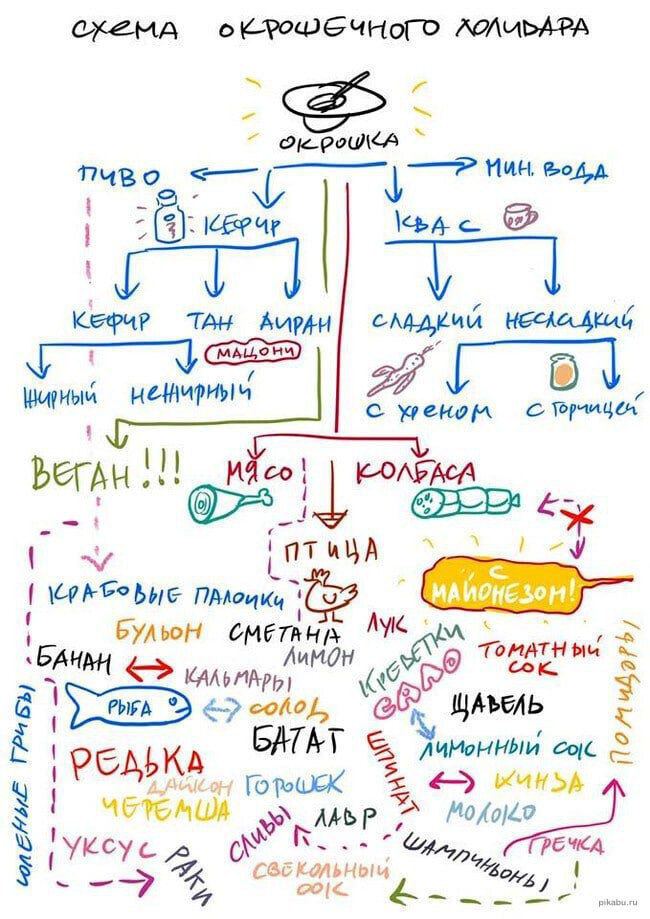 СХЕМА ОКРОШЕЧНОГО ХОЛИВАРА
ОКРОШКА
ПИВО
МИН. ВОДА
КЕФИР
КВАС
КЕФИР ТАН АЙРАН
СЛАДКИЙ НЕСЛАДКИЙ
МАЦОНИ
ЖИРНЫЙ НЕЖИРНЫЙ
С ХРЕНОМ С ГОРЧИЦЕЙ
ВЕГАН!!!
МЯСО
КОЛБАСА
ПТИЦА
С МАЙОНЕЗОМ!
КРАБОВЫЕ ПАЛОЧКИ
БУЛЬОН
СМЕТАНА
ЛУК
КРЕВЕТКИ
ТОМАТНЫЙ
СОК
ПОМИДОРЫ
БАНАН
КАЛЬМАРЫ
ЛИМОН
САЛО
ЩАВЕЛЬ
СОЛЕНЫЕ ГРИБЫ
РЫБА
СОЛОД
БАТАТ
ЛИМОННЫЙ СОК
РЕДЬКА
ДАЙКОН
ГОРОШЕК
ШПИНАТ
КИНЗА
ЧЕРЕМША
СЛИВЫ
ЛАВР
МОЛОКО
УКСУС
РАКИ
СВЕКОЛЬНЫЙ
СОК
ШАМПИНЬОНЫ
ГРЕЧКА
pikabu.ru